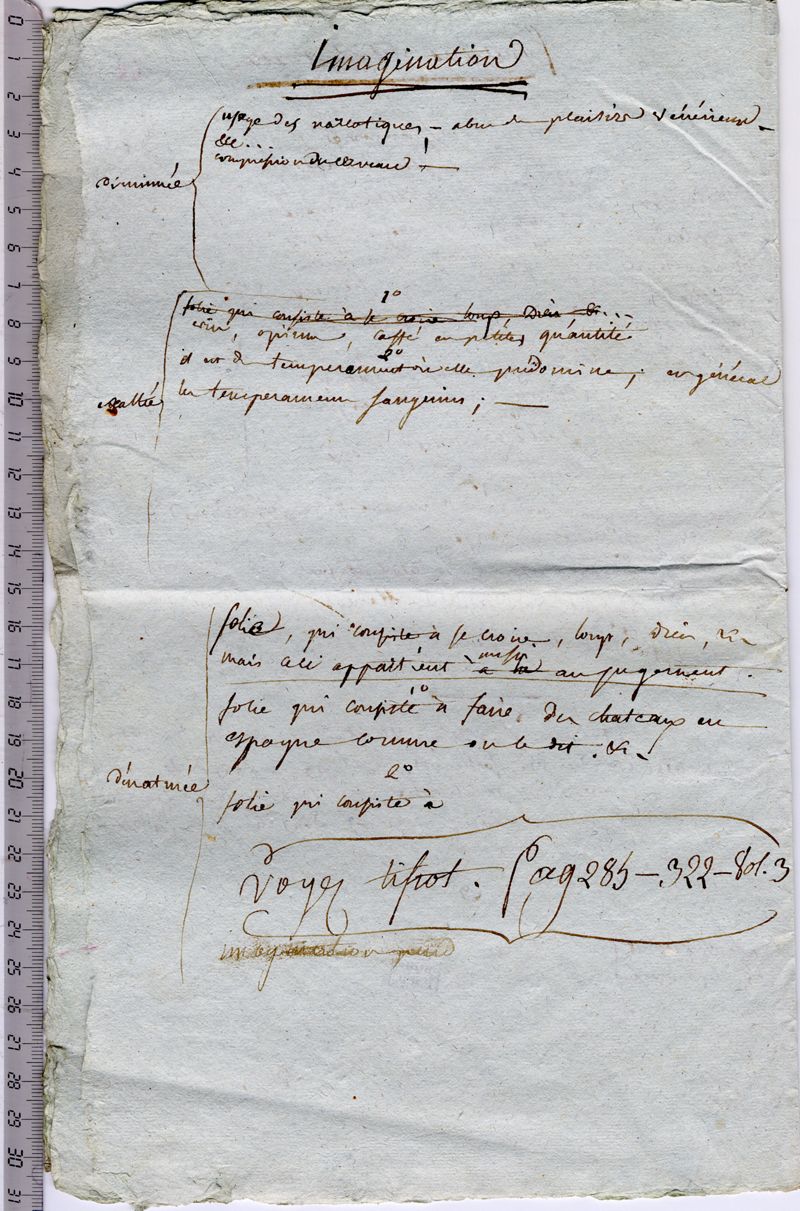 Imagination
diminuée
usage des narcotiques – abus des plaisirs vénériens –
&c...
compression du cerveau ! –
exaltée
1º
folie qui consiste à se croire loup Dieu &c...
vin, opium, caffé en petites quantité
2º
il est de temperament où elle prédomine ; en général
les temperamens sanguins ; —
dénaturée
folie, qui consiste à se croire, loup, Dieu, &c
aussi
mais ceci appartient au jugement.
1º
folie qui consiste à faire des chateaux en
espagne comme on le dit. &c.
2º
folie qui consiste à
voyez tissot. Pag 285 – 322 – Vol. 3
imagination